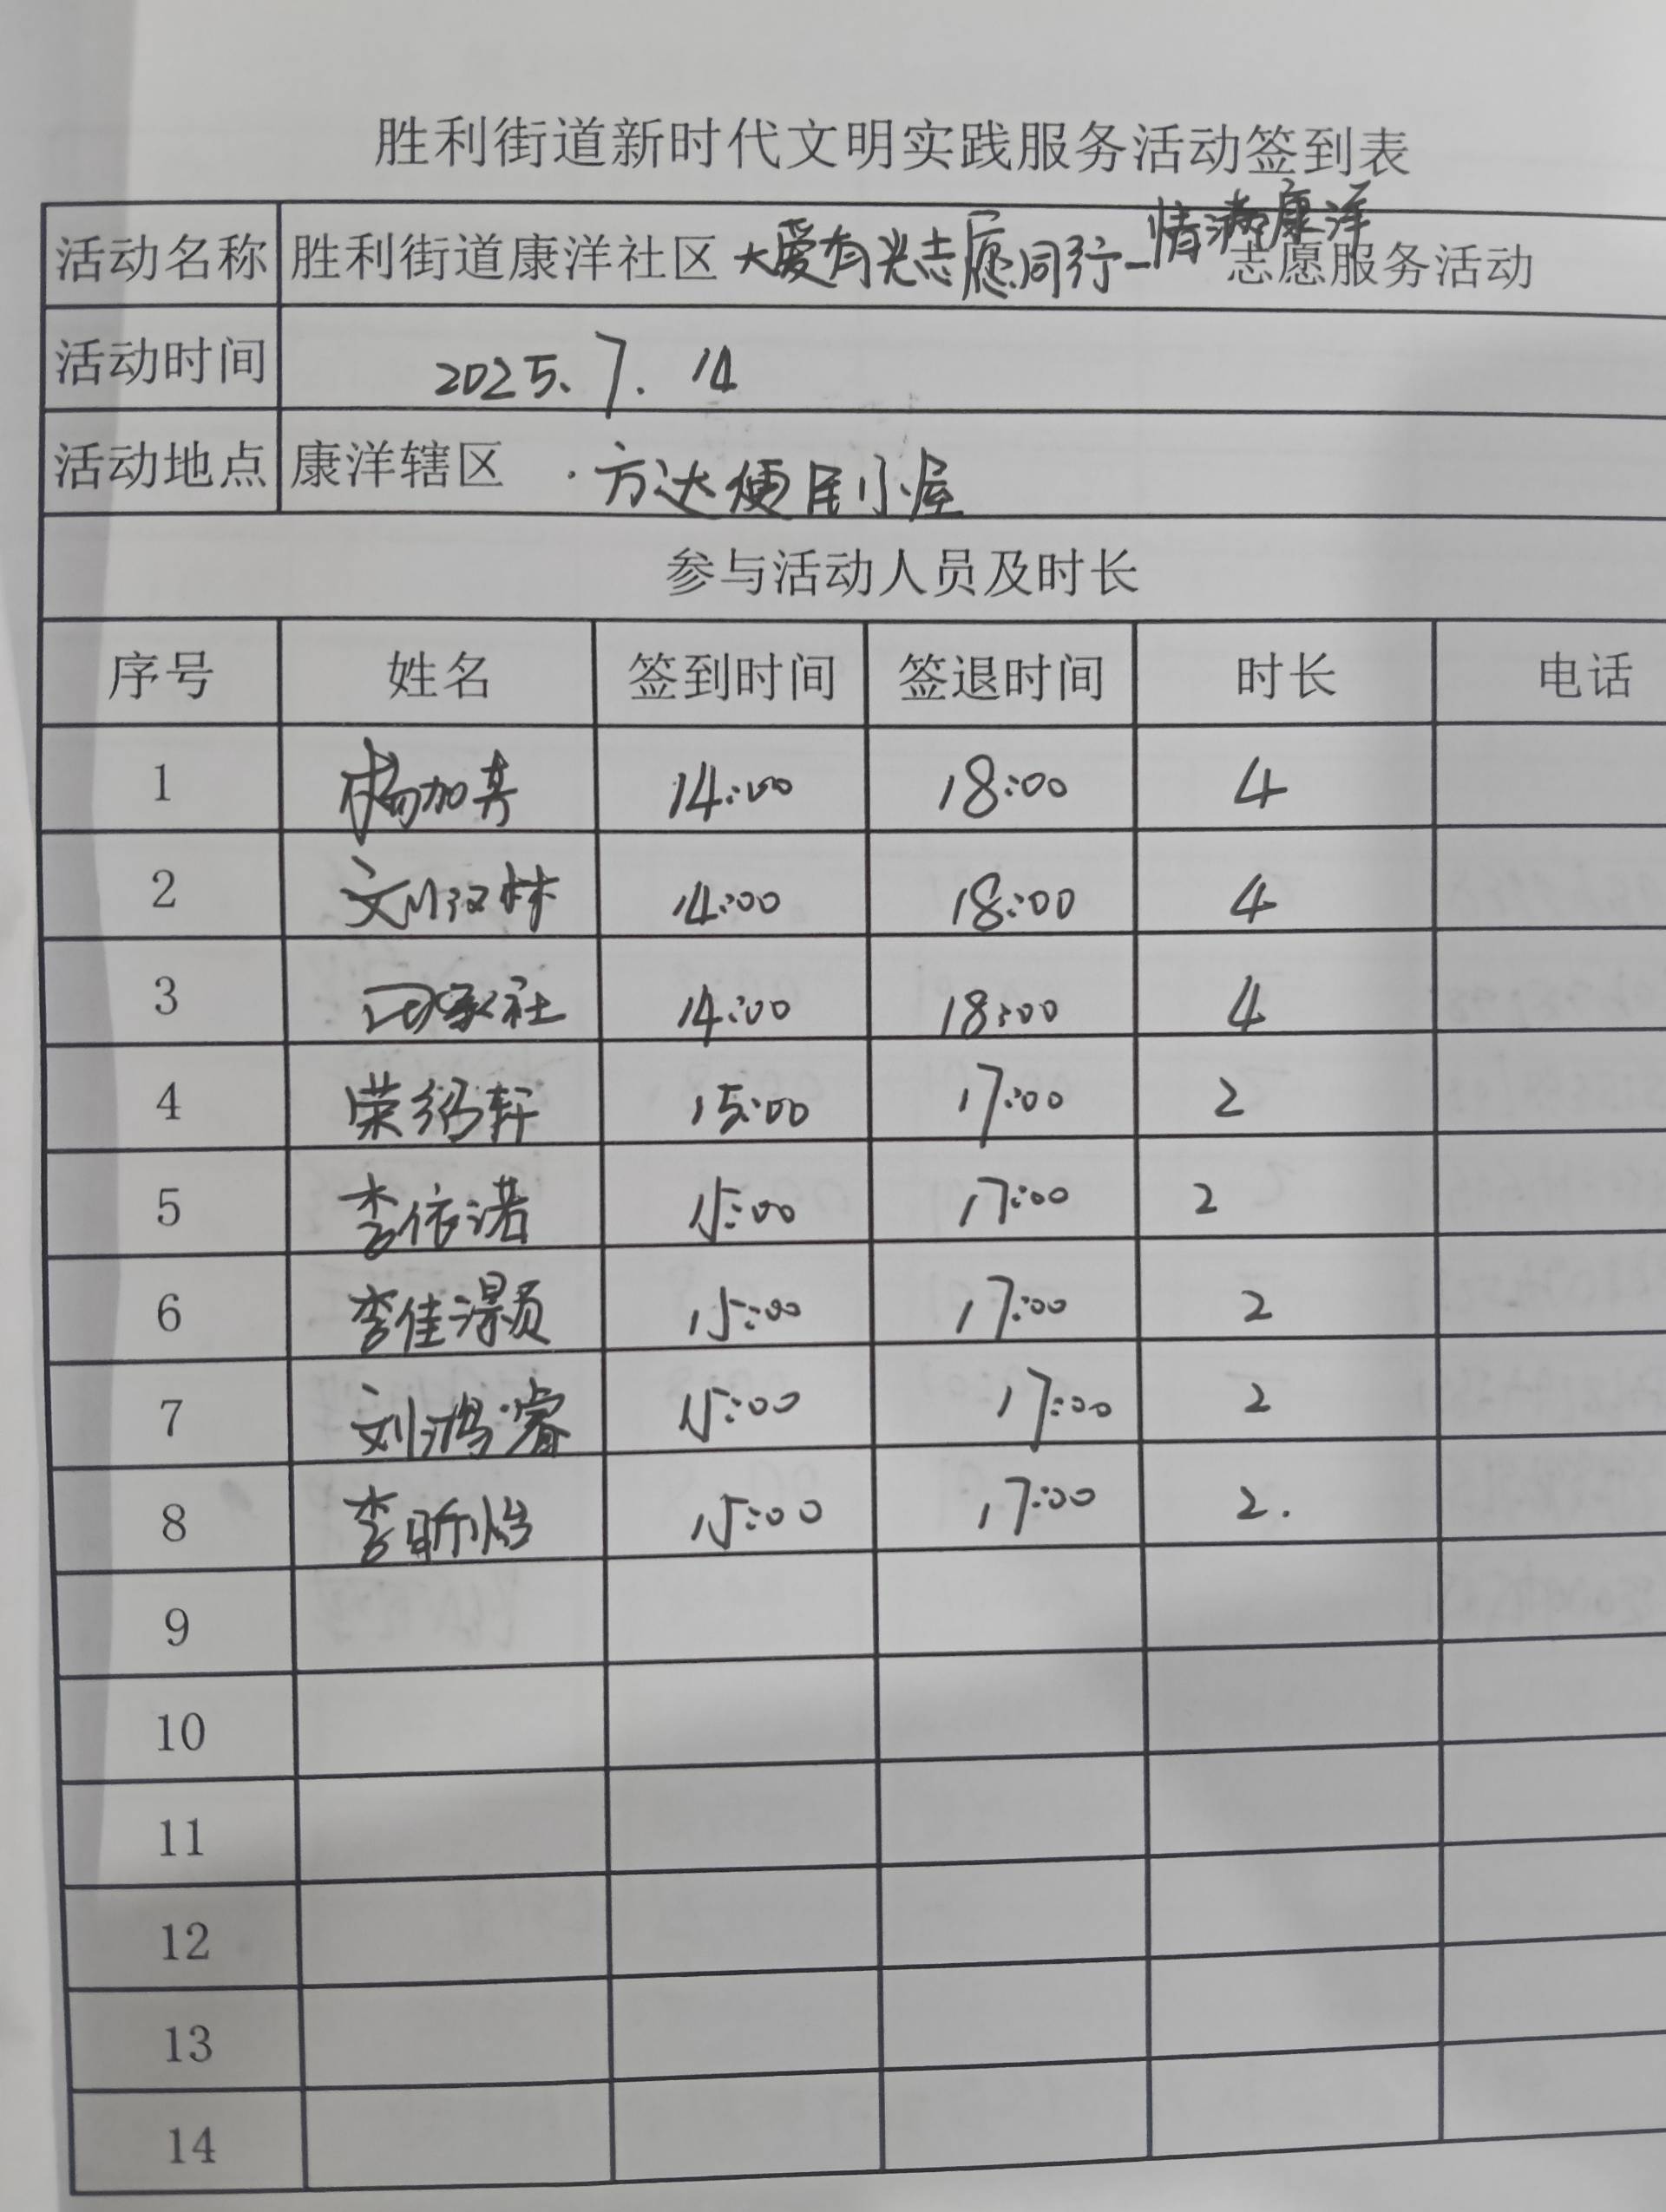 胜利街道新时代文明实践服务活动签到表
活动名称 胜利街道康洋社区 大爱有光志愿同行-情满康洋 志愿服务活动
活动时间 2025.7.14
活动地点 康洋辖区 方达便民小屋
参与活动人员及时长
序号 姓名 签到时间 签退时间 时长 电话
1 杨加 14:00 18:00 4
2 刘汉林 14:00 18:00 4
3 社 14:00 18:00 4
4 荣绍轩 15:00 17:00 2
5 李依诺 15:00 17:00 2
6 李佳灏 15:00 17:00 2
7 刘鸿睿 15:00 17:00 2
8 李昕怡 15:00 17:00 2.
9
10
11
12
13
14